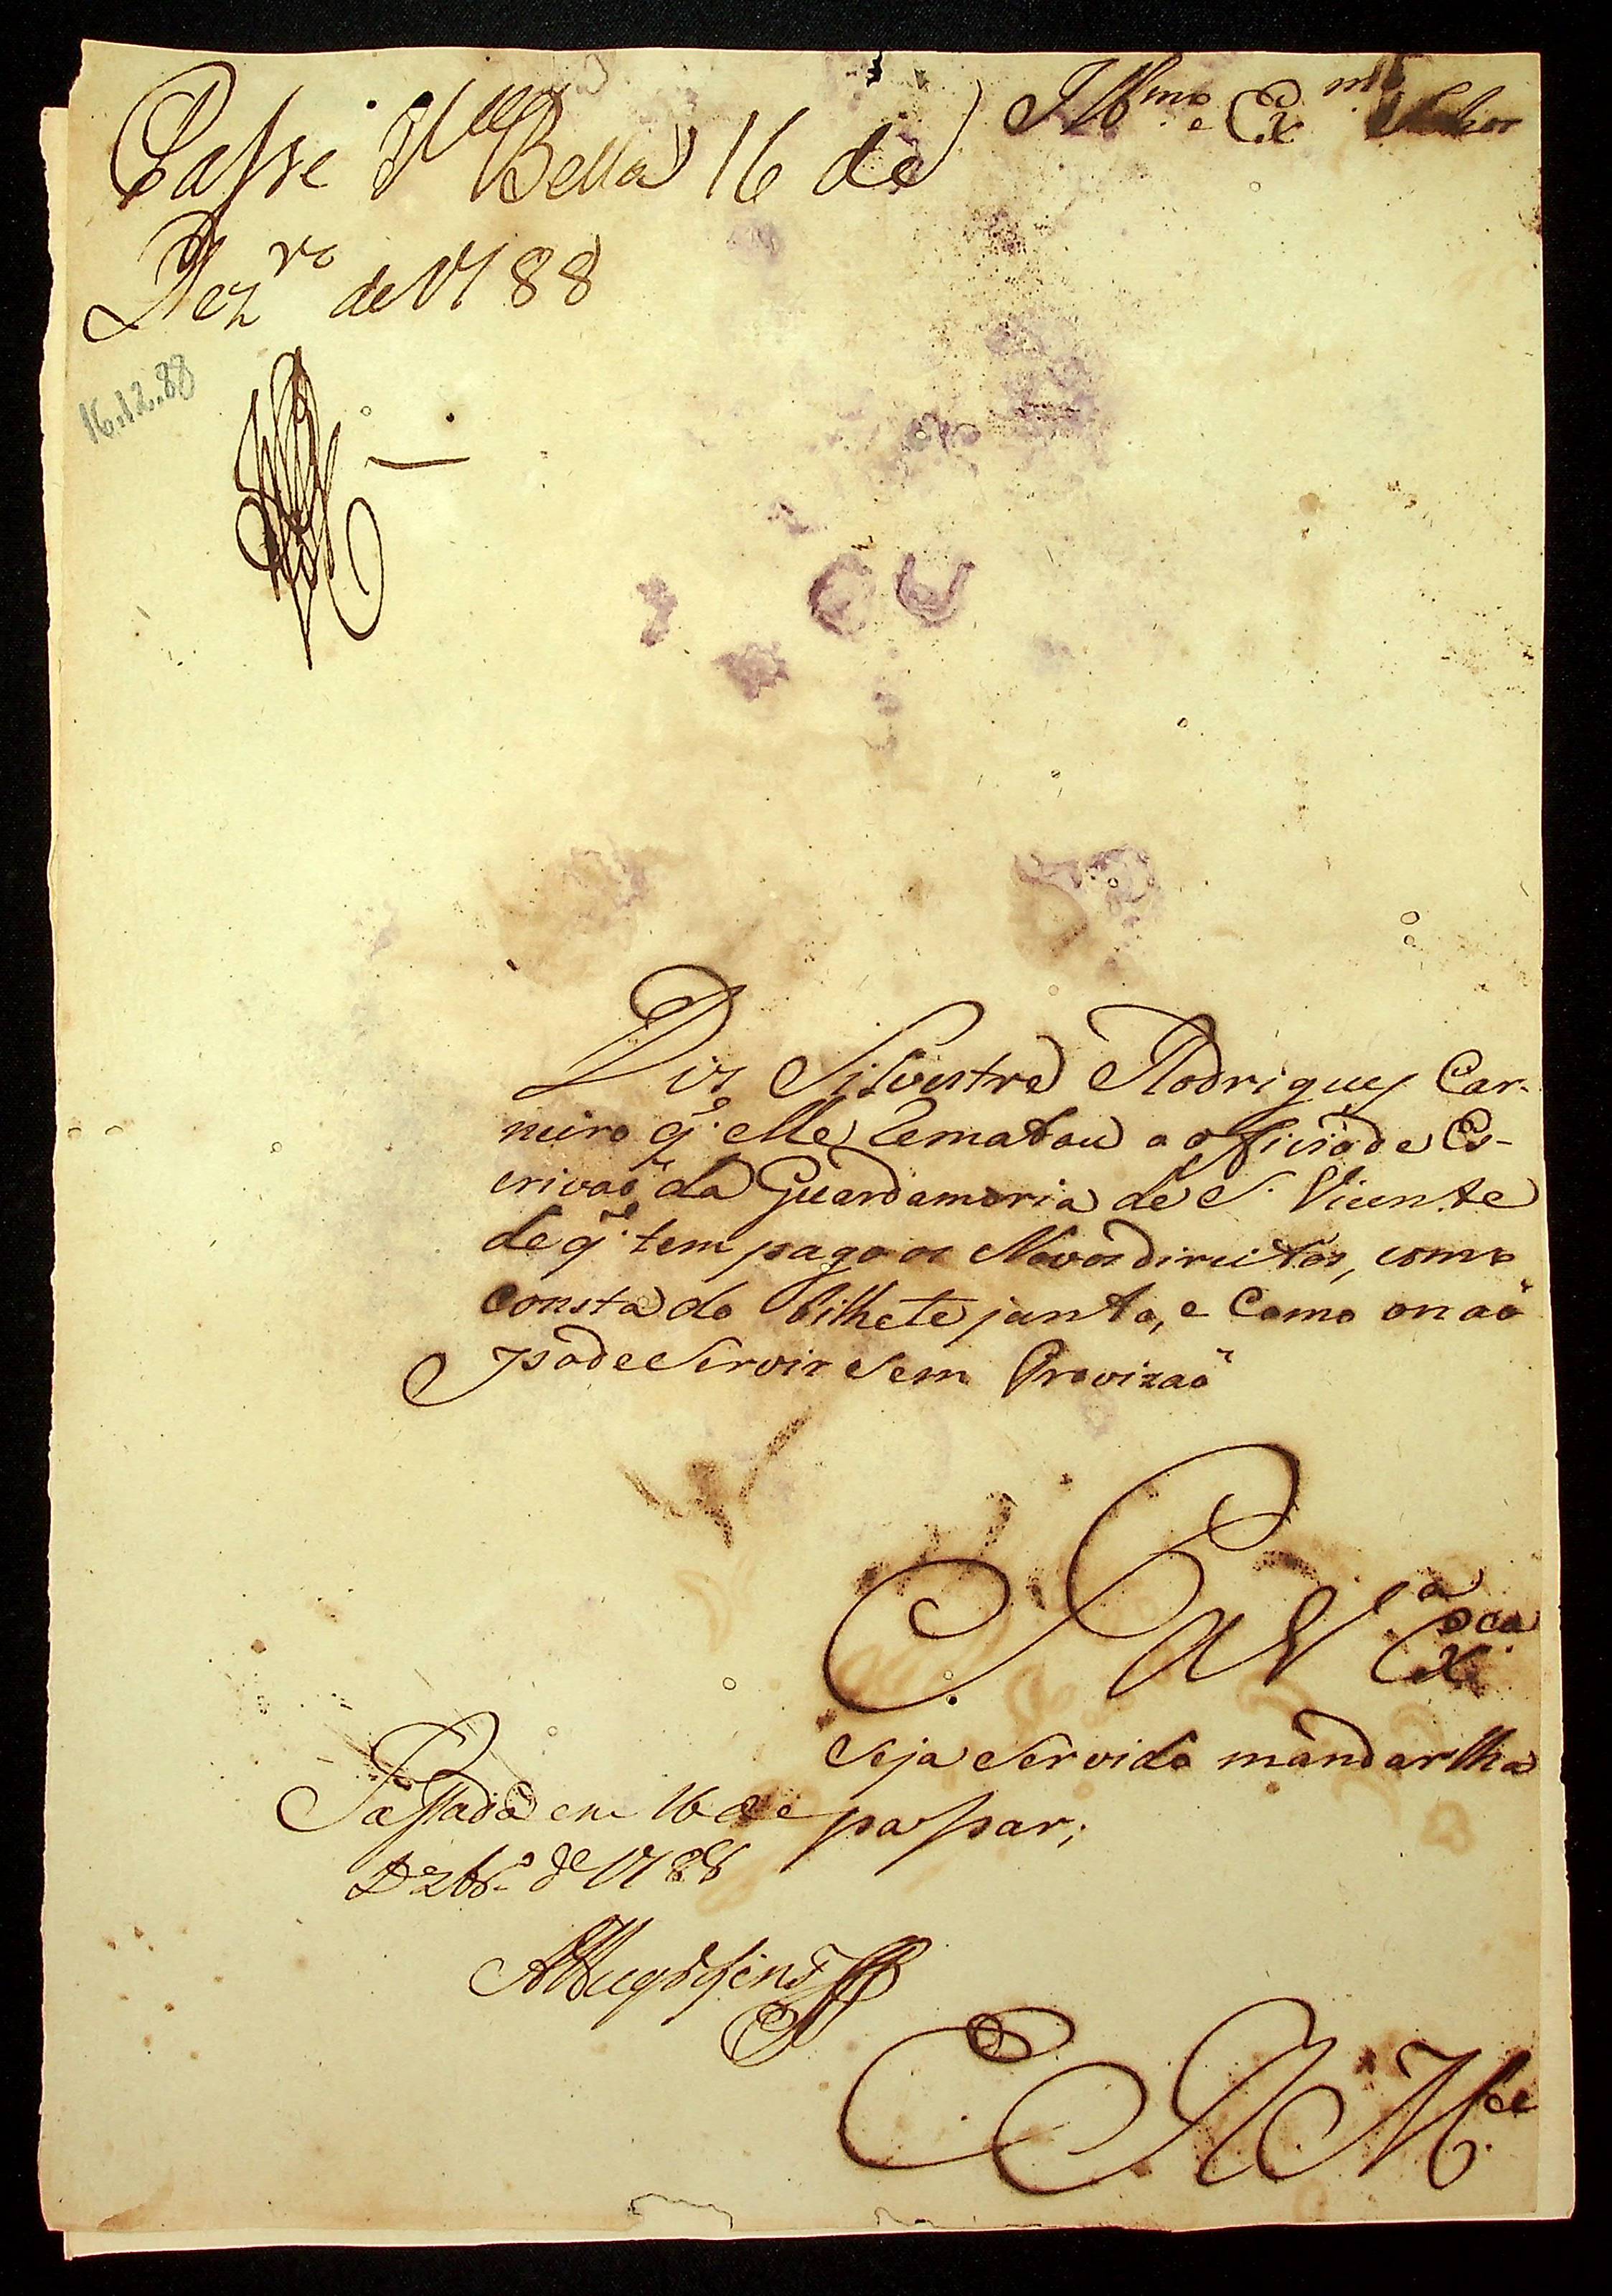 Passe V.ª Bella 16 de
Dez.ro de 1788
16.12.88
Ill.mo e Ex.mo Senhor
Diz Silvestre Rodrigues Car-
neiro q̃ elle Rematou o officio de Es-
crivaõ da Guardamoria de S. Vicente
de q̃ tem pago os Novos direitos, como
consta do bilhete junto, e Como o naõ
pode Servir Sem Provizaõ
P. a V. Ex.ca
Seja Servido mandar lha
passar;
Passada em 16 de
Dezbr.o de 1788
E R M.ce